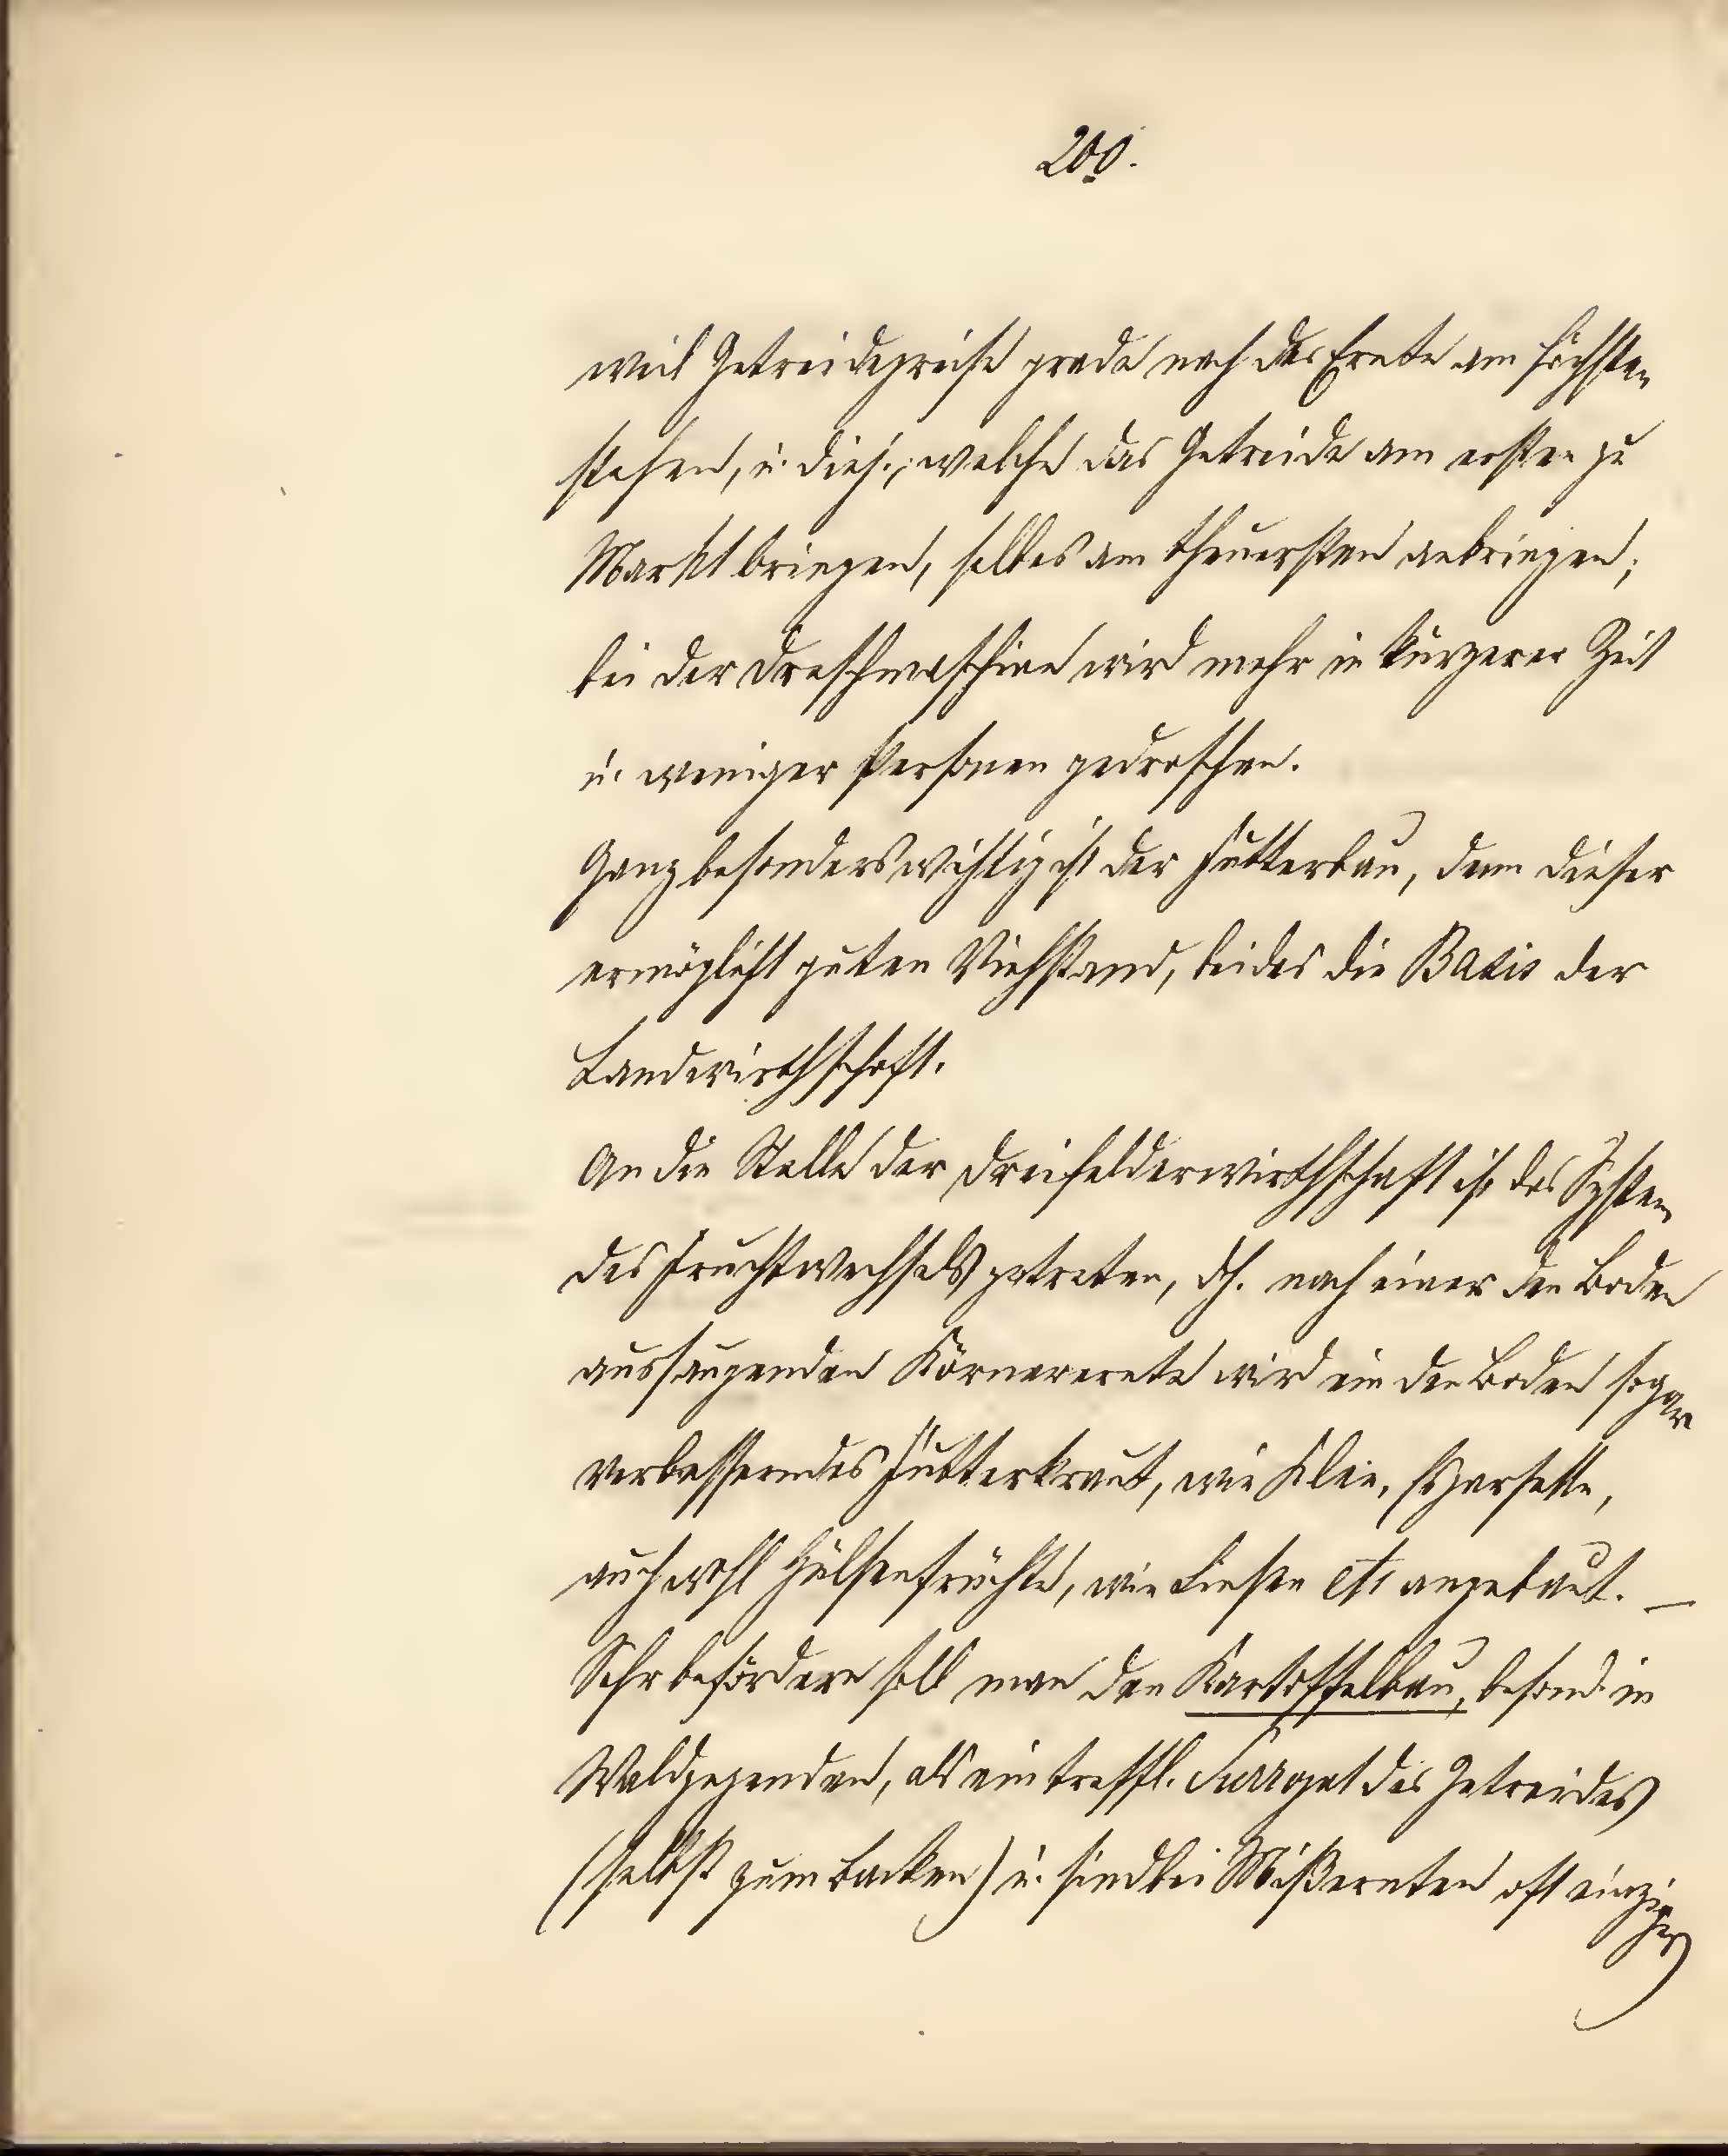 200.
weil Getreidepreise grade nach der Ernte am höchsten
stehen, u. diej., welche das Getreide am ersten zu
Markt bringen, selbes am theuersten anbringen;
bei der Dreschmaschine wird mehr in kürzerer Zeit
u. weniger Personen gedroschen.
Ganz besonders wichtig ist der Futterbau, denn dieser
ermöglicht guten Viehstand, beides die Basis der
Landwirthschaft.
An die Stelle der Dreifelderwirthschaft ist das System
des Fruchtwechsels getreten, dh. nach einer den Boden
aussaugenden Körnerernte wird ein den Boden sogar
verbesserndes Futterkraut, wie Klee, Esparsette,
auch wohl Hülsenfrüchte, wie Linsen etc angebaut. —
Sehr befördern soll man den Kartoffelbau, besond. in
Waldgegenden, als ein treffl. Surrogat des Getreides
(selbst zum Backen) u. sind bei Mißernten oft einziger